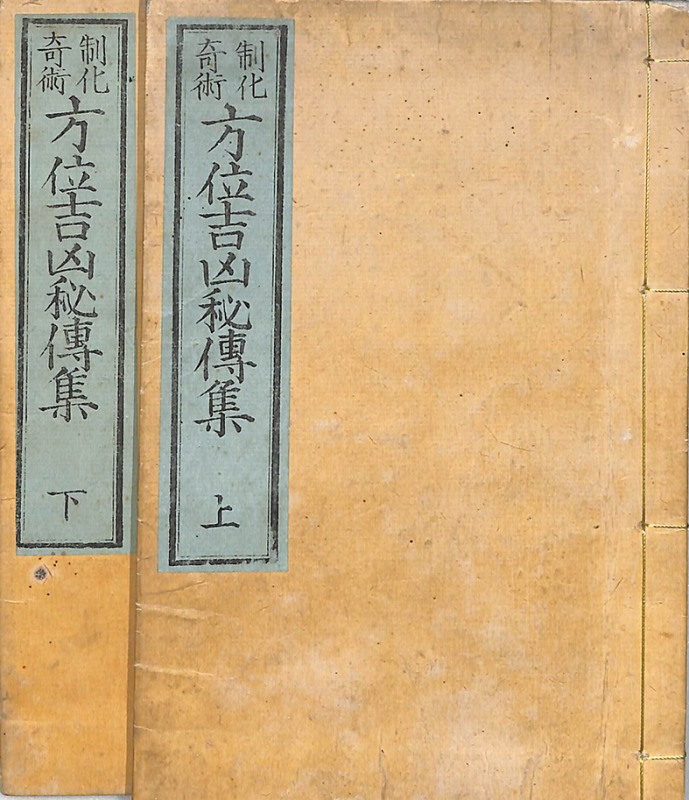 制化
奇術
方位吉凶秘傳集
上
制化
奇術
方位吉凶秘傳集
下